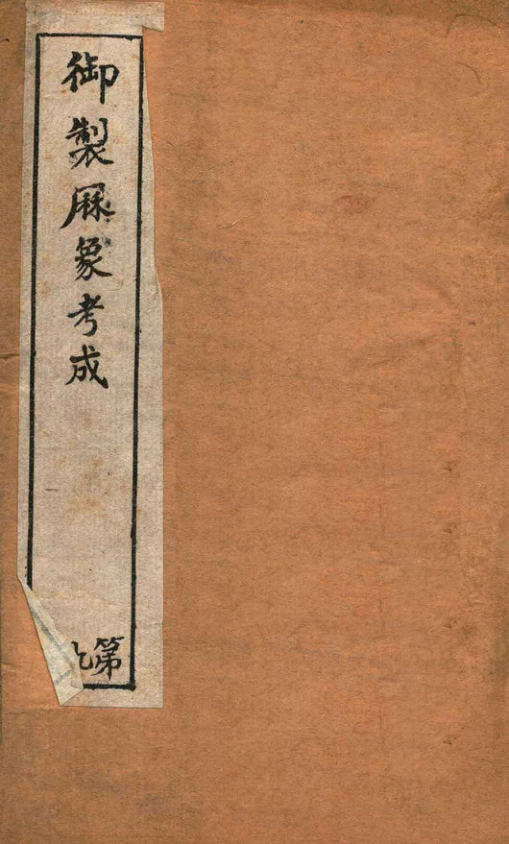 御製厤象考成
第